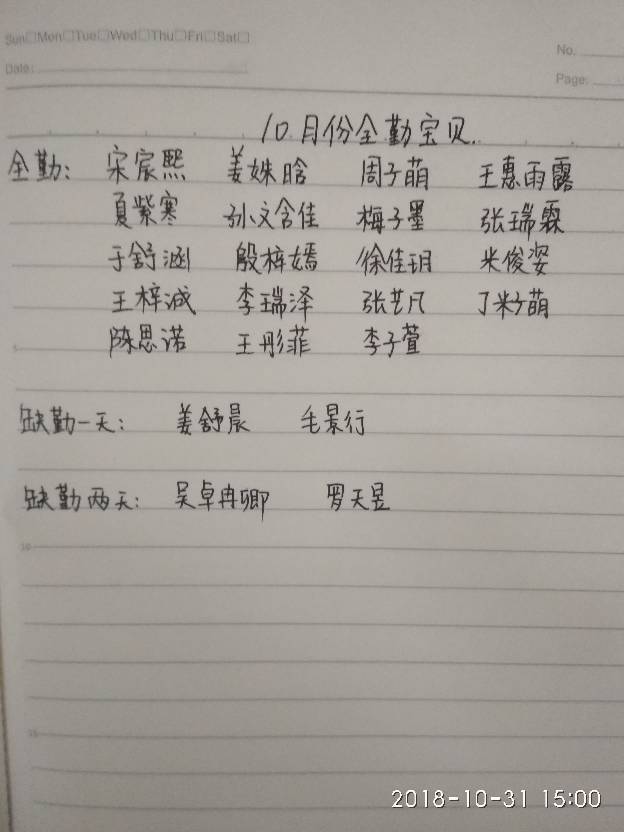 Sun□Mon□Tue□Wed□Thu□Fri□Sat□
No.
Date:
Page:
10月份全勤宝贝.
全勤: 宋宸熙 姜姝晗 周子萌 王惠雨露
夏紫寒 孙文含佳 梅子墨 张瑞霖
于舒涵 殷梓嫣 徐佳玥 米俊姿
王梓诚 李瑞泽 张艺凡 丁籽萌
陈思诺 王彤菲 李子萱
缺勤一天: 姜舒晨 毛景行
缺勤两天: 吴卓冉卿 罗天昱
10
15
2018-10-31 15:00